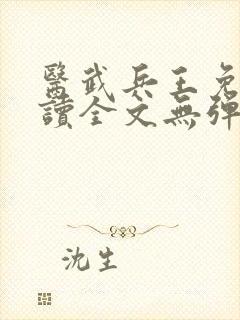 醫武兵王免
讀全文無彈
沈生